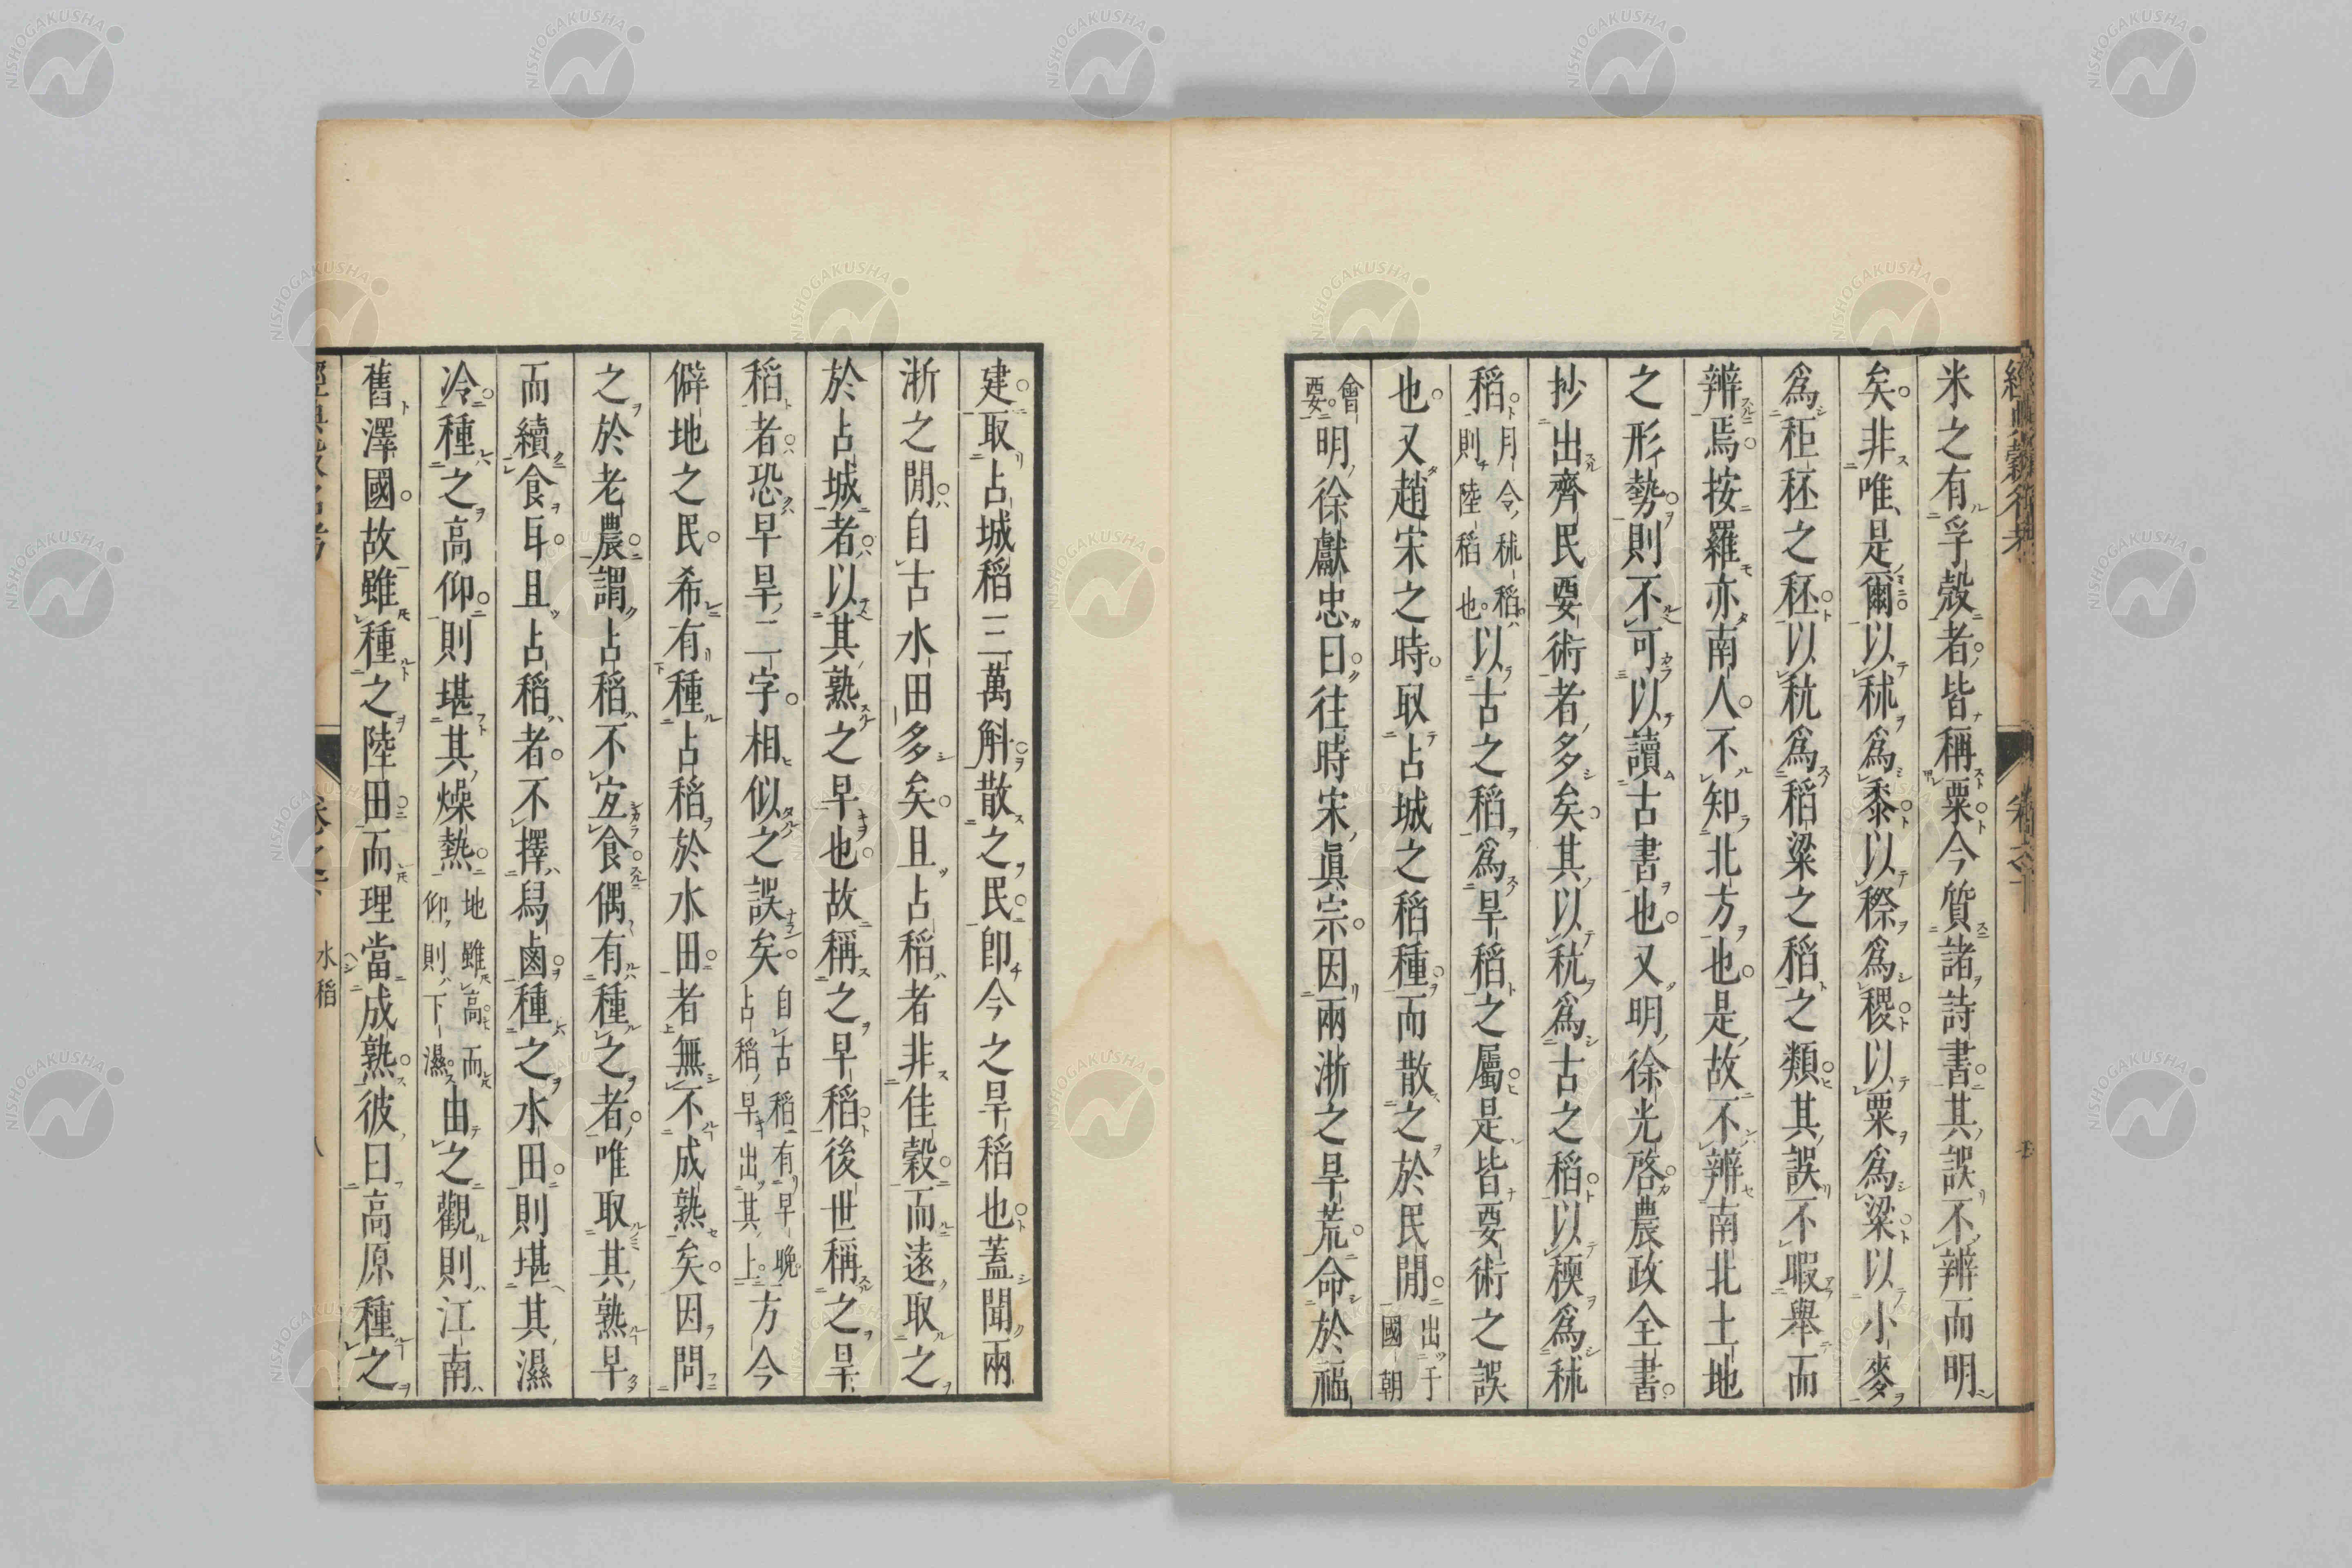 米之有孚殼者皆稱粟今質諸詩書其誤不辨而明
矣非唯是爾以秫爲黍以穄爲稷以粟爲粱以小麥
爲秠秠之秠以秔爲稻粱之稻之類其誤不暇舉而
辨焉按羅亦南人不知北方也是故不辨南北土地
之形勢則不可以讀古書也又明徐光啓農政全書
抄出齊民要術者多矣其以秔爲古之稻以稬爲秫
稻月令秫稻則陸稻也以古之稻爲旱稻之屬是皆要術之誤
也又趙宋之時取占城之稻種而散之於民間出于國朝
會要明徐獻忠曰往時宋眞宗因兩浙之旱荒命於福
建取占城稻三萬斛散之民卽今之旱稻也蓋聞兩
浙之間自古水田多矣且占稻者非佳穀而遠取之
於占城者以其熟之早也故稱之早稻後世稱之旱
稻者恐早旱二字相似之誤矣自古稻有早晚占稻早出其上方今
僻地之民希有種占稻於水田者無不成熟矣因問
之於老農謂占稻不宜食偶有種之者唯取其熟早
而續食耳且占稻者不擇舄鹵種之水田則堪其濕
冷種之高仰則堪其燥熱地雖高而仰則下濕由之觀則江南
舊澤國故雖種之陸田而理當成熟彼曰高原種之
水稻
八
NISHOGAKUSHA